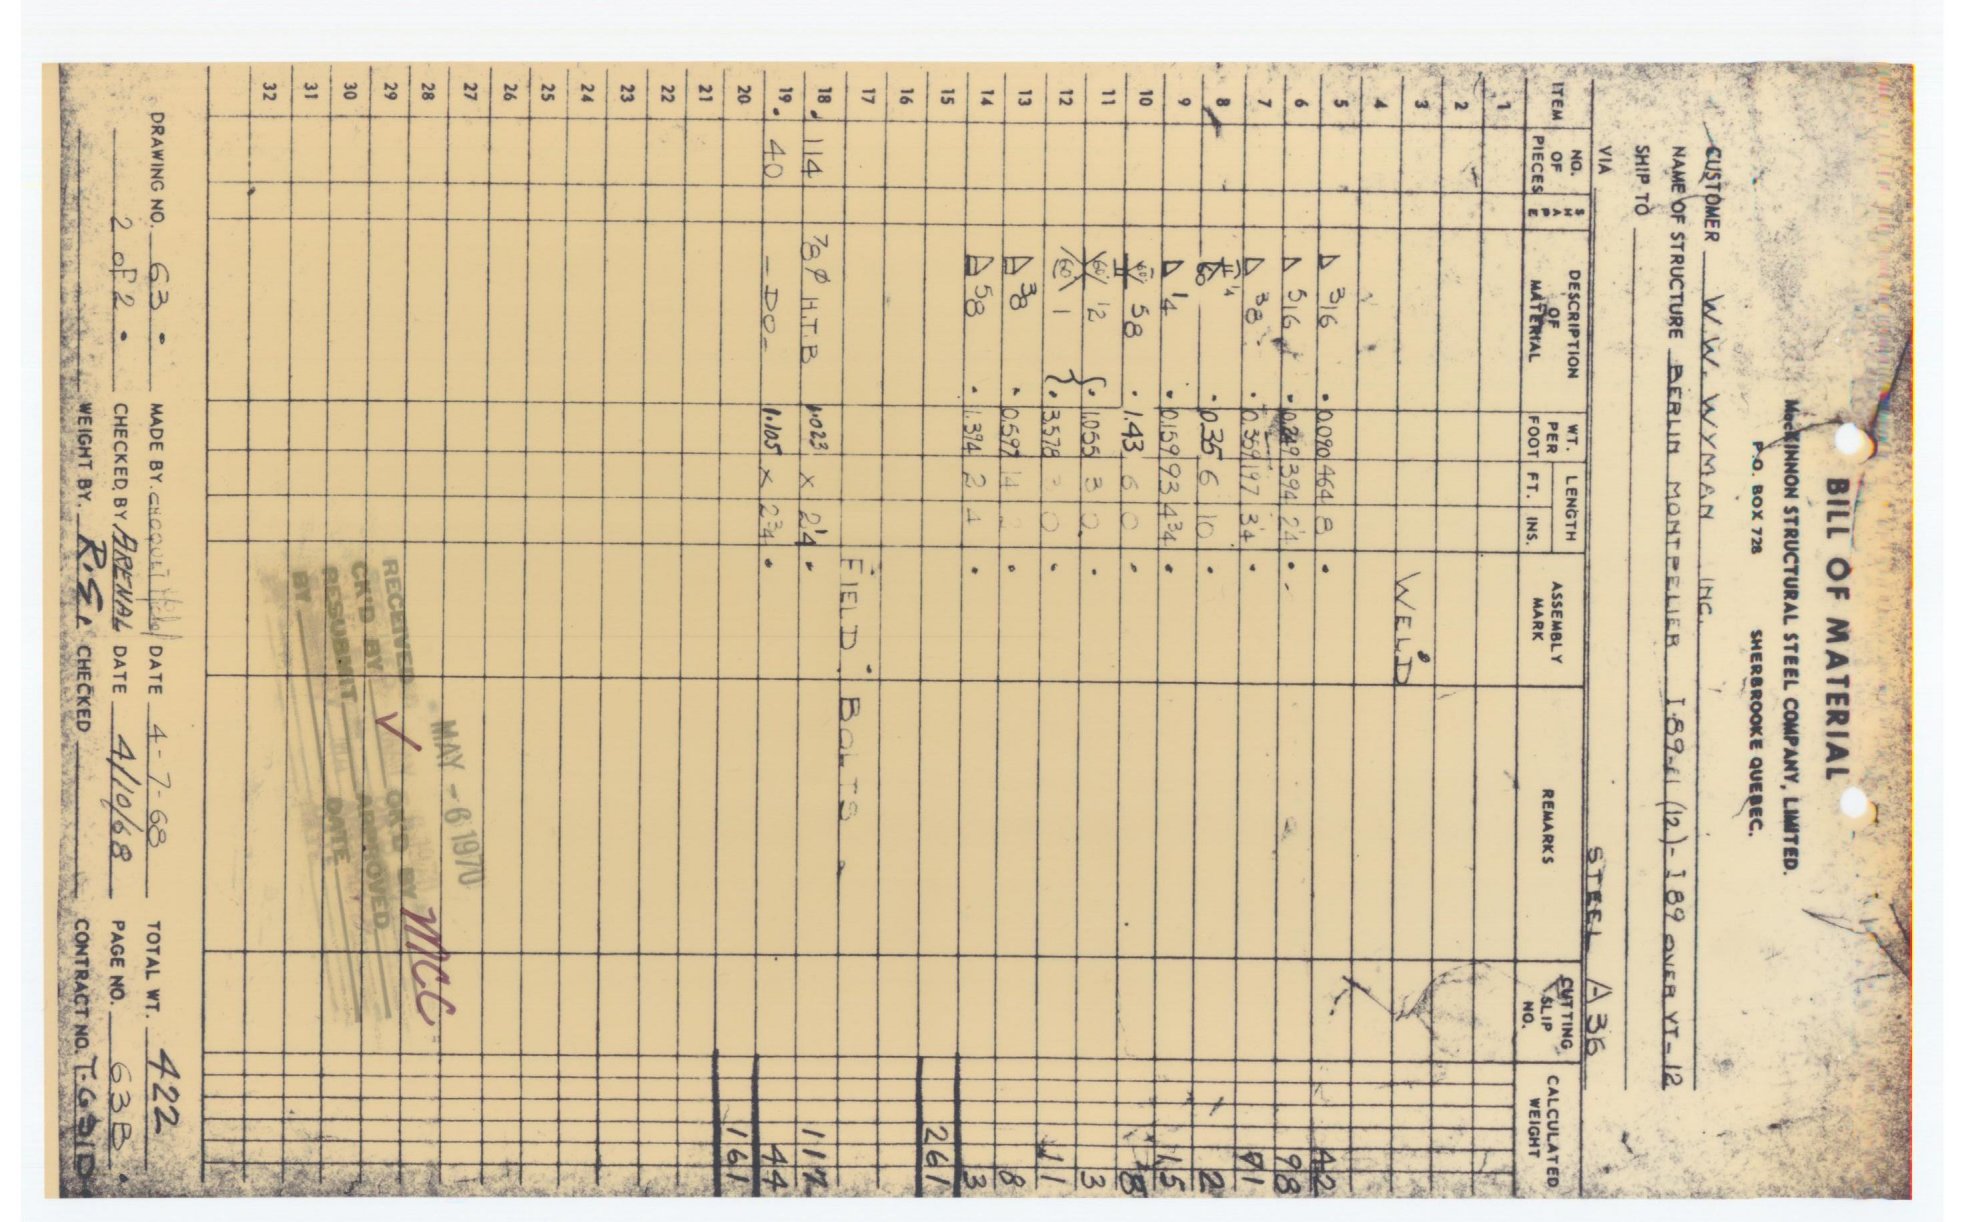 BILL OF MATERIAL
MacKINNON STRUCTURAL STEEL COMPANY, LIMITED.
P.O. BOX 728 SHERBROOKE QUEBEC.
CUSTOMER W.W. WYMAN INC.
NAME OF STRUCTURE BERLIN MONTPELIER I-89-1(12)-I 89 OVER VT-12
SHIP TO
VIA STEEL A36
ITEM NO. OF PIECES SHAPE DESCRIPTION OF MATERIAL WT. PER FOOT LENGTH FT. INS. ASSEMBLY MARK REMARKS CUTTING SLIP NO. CALCULATED WEIGHT
1
2
3
4 WELD
5 316 0.090 464 8 42
6 516 0.249 394 2 1/4 98
7 38 0.359 197 3 1/4 71
8 1/4 60 0.35 6 10 2
9 1/4 0.159 93 4 3/4 15
10 60 58 1.43 6 0 8
11 60 12 1.055 3 0 3
12 60 1 3.578 3 0 11
13 38 0.597 14 2 8
14 58 1.394 2 4 3
15 261
16
17 FIELD BOLTS
18 114 7/8 φ H.T.B 1.023 X 2 1/4 117
19 40 -DO- 1.105 X 2 3/4 44
20 161
21
22
23
24
25
26
27
28
29
30
31
32
MAY - 6 1970
RECEIVED
CK'D BY OK'D BY MCC
RESUBMIT APPROVED
BY DATE
DRAWING NO. 63 MADE BY. DATE 4-7-68 TOTAL WT. 422
2 of 2 CHECKED BY ARENAL DATE 4/10/68 PAGE NO. 63B
WEIGHT BY. R.S. CHECKED CONTRACT NO.